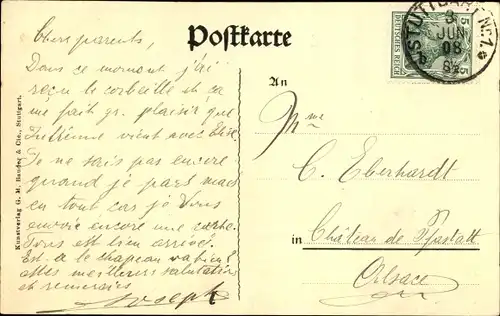 Postkarte
Chers parents,
Dans ce moment j'ai
reçu le corbeille et ca
me fait gr. plaisir que
vient avec Elise.
Je ne sais pas encore
quand je pars mais
en tout cas je Vous
envoie encore une carte.
Tous est bien arrivé.
Est-à le chapeau va bien?
Mes meilleurs salutations
et remercies
Joseph
Kunstverlag G. M. & Cie., Stuttgart.
STUTTGART Nr. 1
3
JUN
08
DEUTSCHES REICH
5
An
Mme
C. Eberhardt
in Château de Pfastatt
Alsace